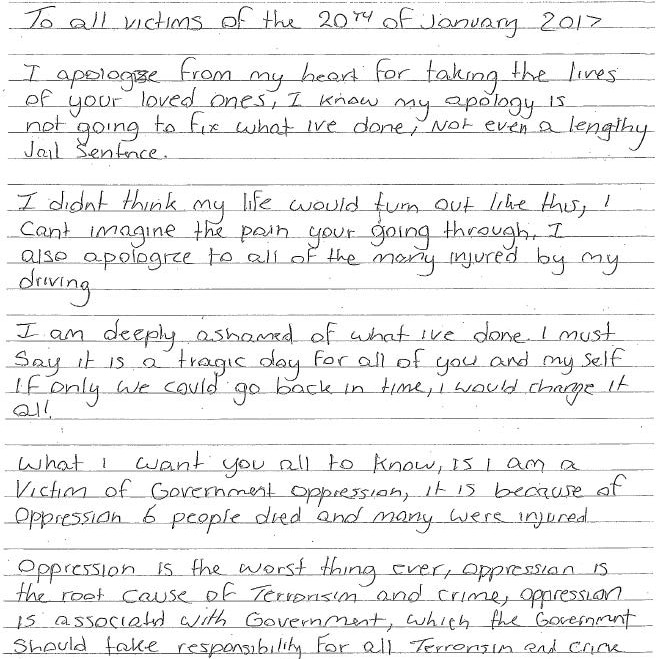 To all victims of the 20TH of January 2017
I apologize from my heart for taking the lives
of your loved ones, I know my apology is
not going to fix what ive done, Not even a lengthy
Jail Sentence.
I didnt think my life would turn out like this, I
Cant imagine the pain your going through. I
also apologize to all of the many injured by my
driving
I am deeply ashamed of what ive done. I must
Say it is a tragic day for all of you and my self
If only we could go back in time, i would change it
all.
What i want you all to know, is I am a
Victim of Government oppression, it is because of
Oppression 6 people died and many were injured
Oppression is the worst thing ever, oppression is
the root cause of Terrorisim and crime, oppression
is associatd with Government, which the Government
Should take responsibility for all Terrorisim and Crime